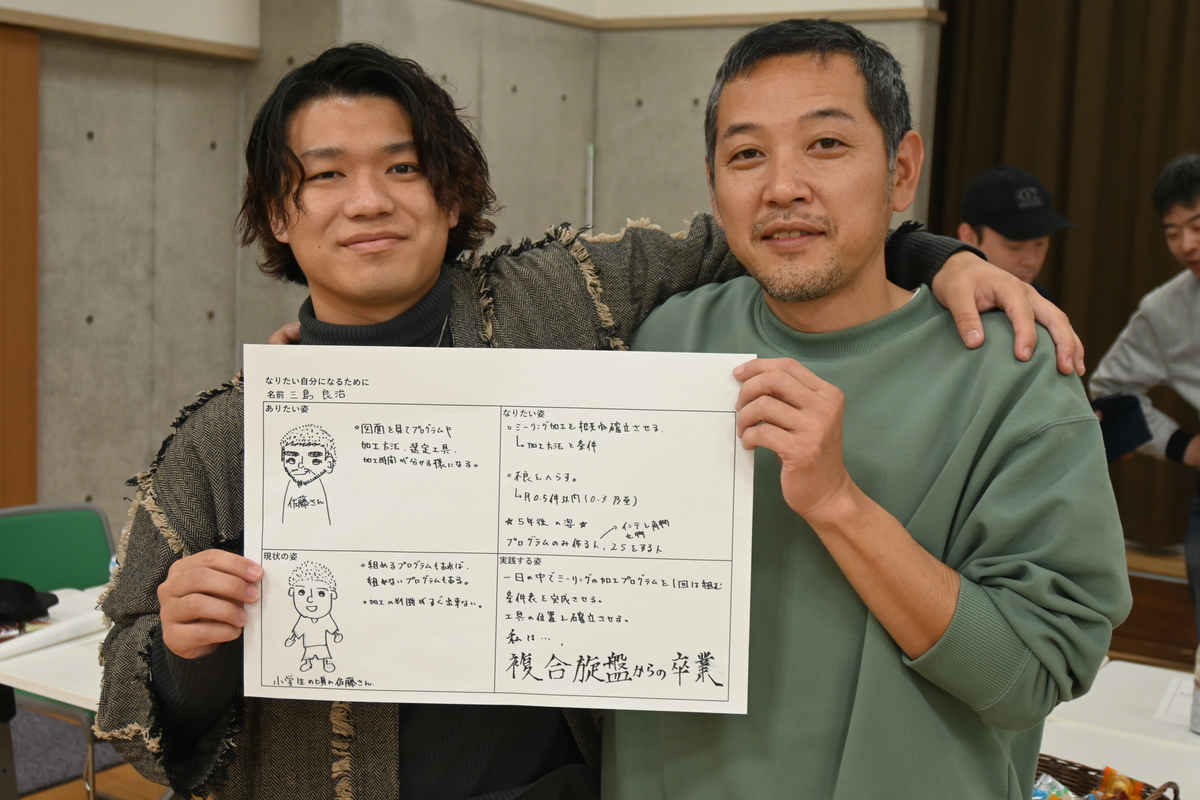 なりたい自分になるために
名前 三島 良治
ありたい姿
○図面を見てプログラムや
加工方法、選定工具、
加工時間が分かる様になる。
佐藤さん
なりたい姿
○ミーリング加工を 確立させる。
↳加工方法と条件
○不良をへらす。
↳月0.5件以内(0.3 乃至)
★5年後の姿★
プログラムのみ作る人、2Sをする人
現状の姿
○組めるプログラムもあれば、
組めないプログラムもある。
○加工の判断がすぐ出来ない。
小学生の頃の佐藤さん
実践する姿
一日の中でミーリングの加工プログラムを1回は組む
条件表を完成させる。
工具の位置を確立させる。
私は…
複合旋盤からの卒業